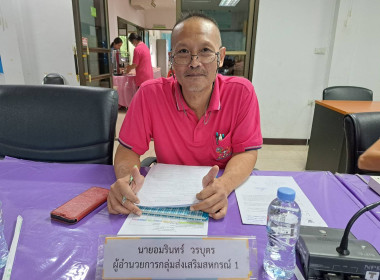 นายอมรินทร์ วรบุตร
ผู้อำนวยการกลุ่มส่งเสริมสหกรณ์ 1